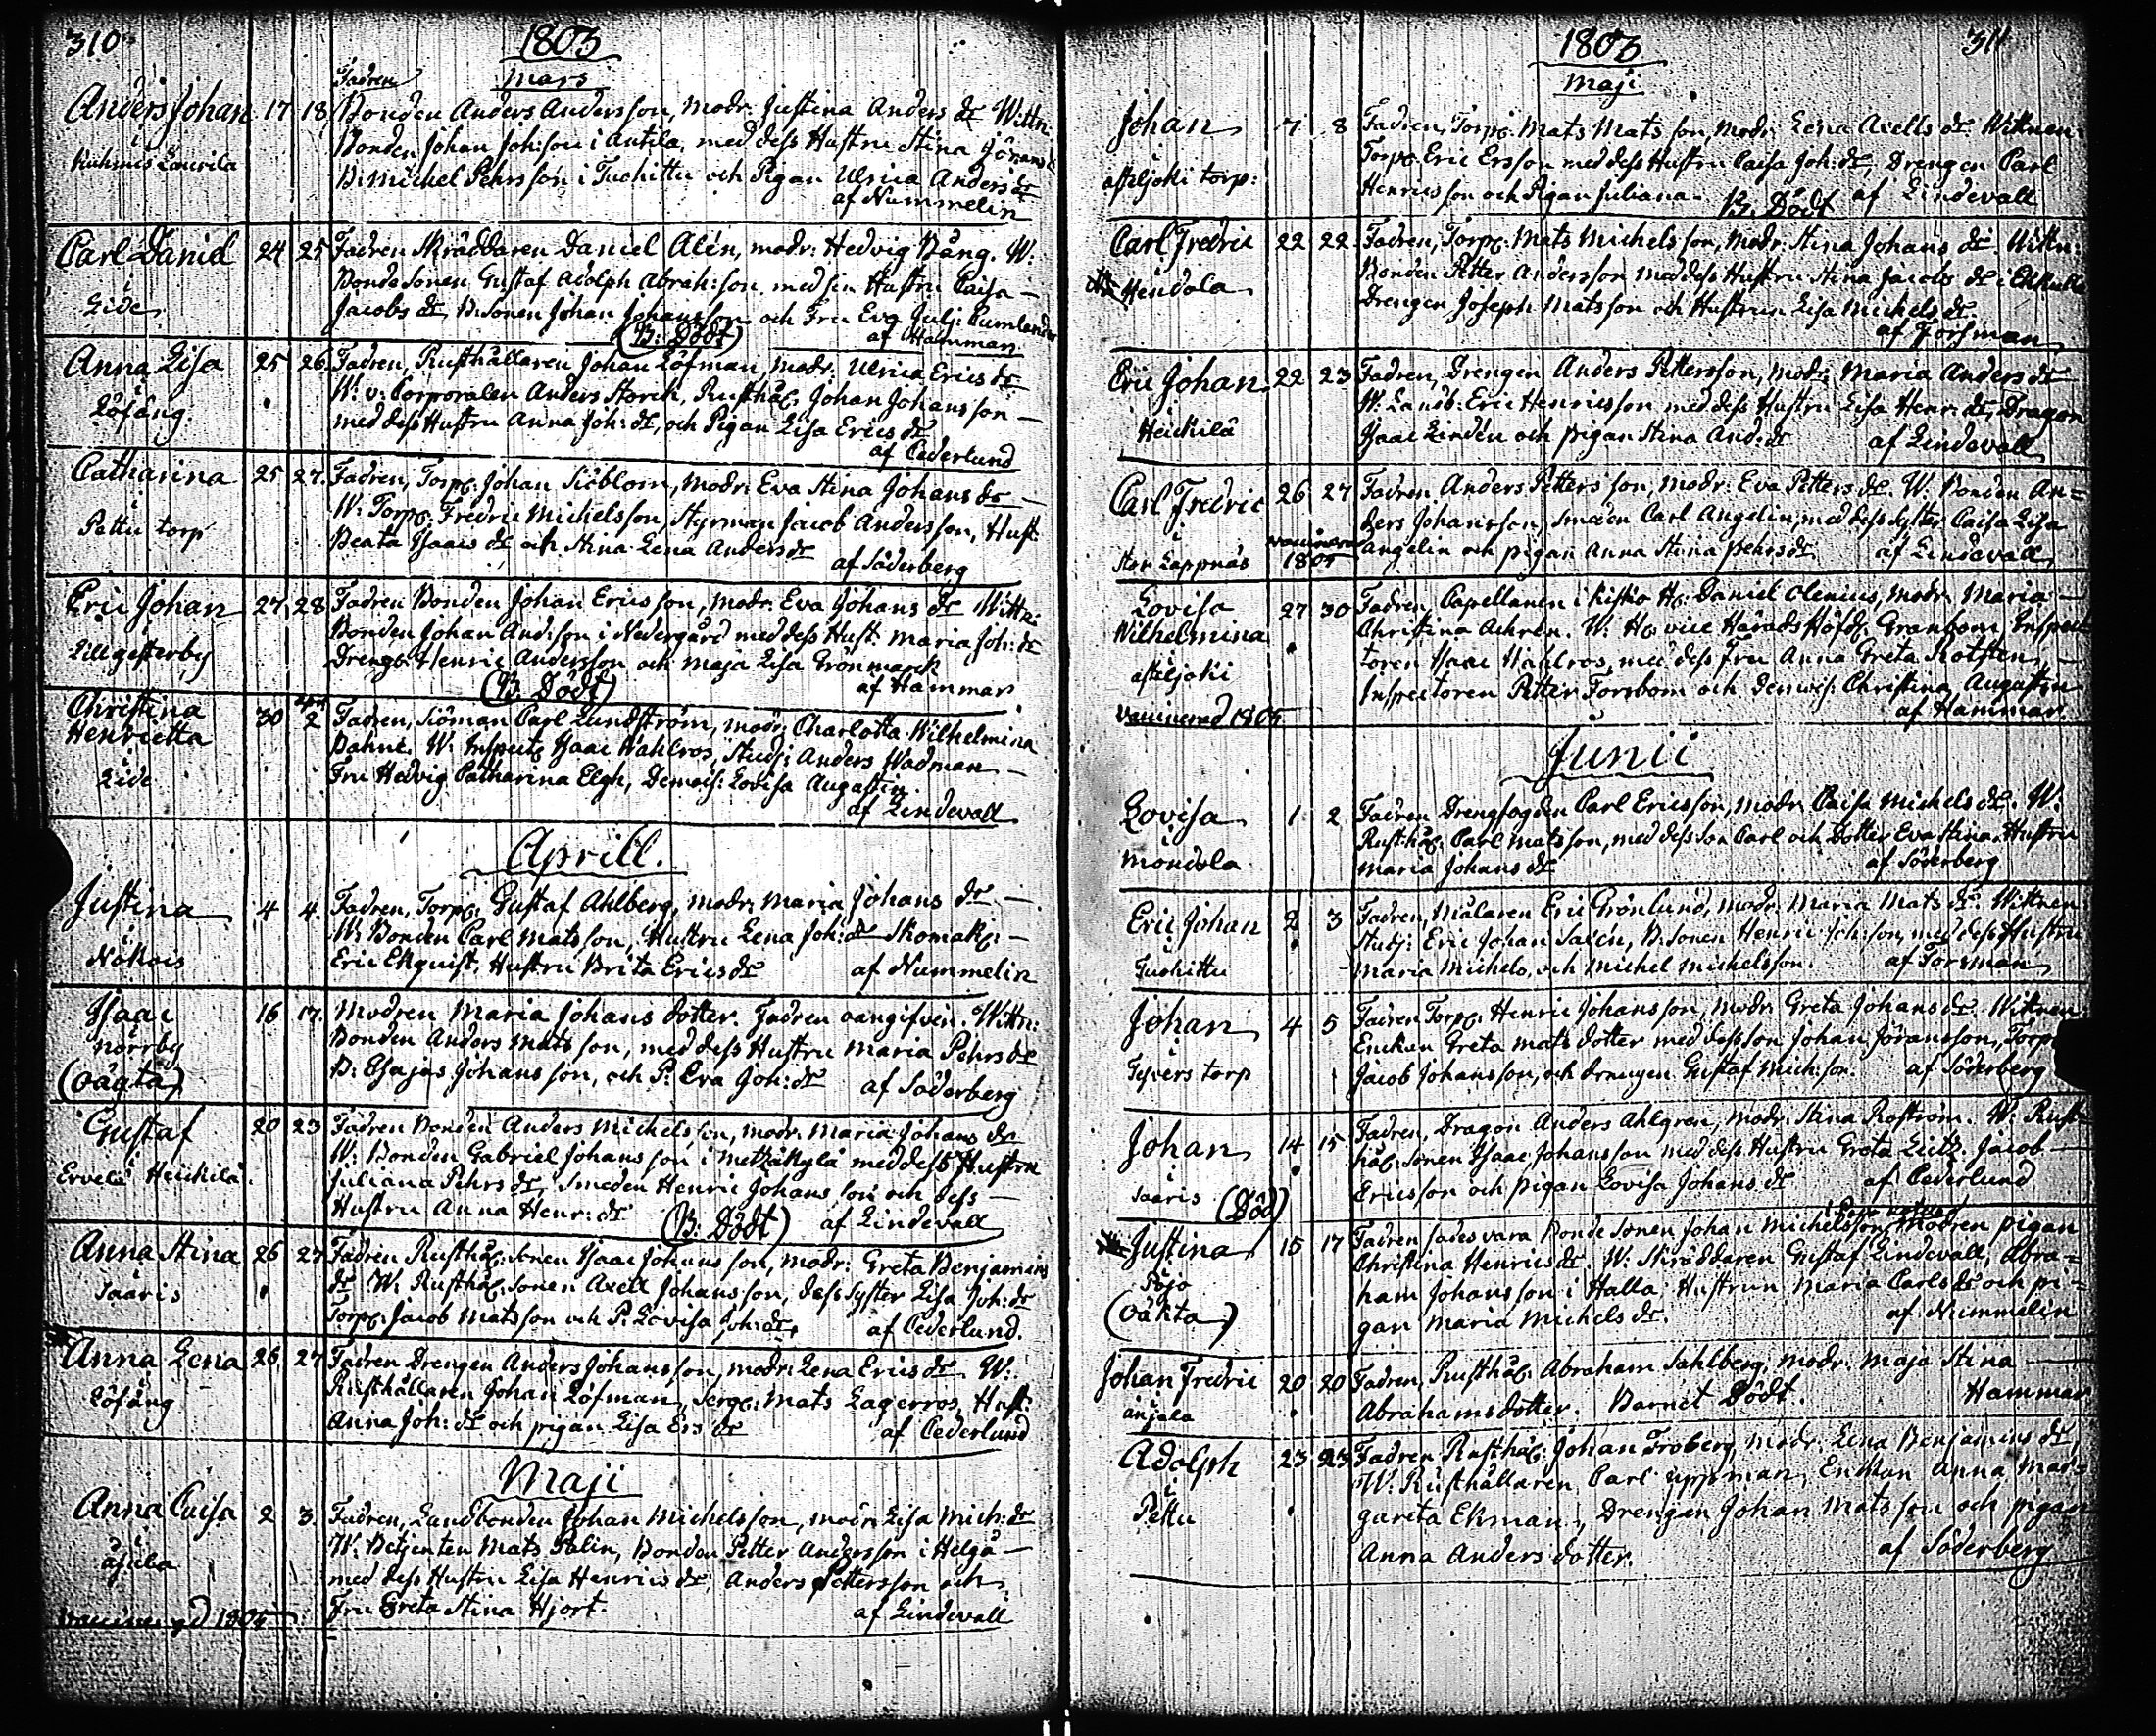 310
1803
Mars
Fadren
Anders Johan
i
17 18 Bonden Anders Andersson, modr. Justina Anders dr Wittn:
Bonden Johan Joh:son i Antila, med dess Hustru Stina
B: Michel Pehrsson i Tuohittu och Pigan Ulrica Anders dr
af Nummelin
Carl Daniel
i
Lide
24 25 Fadren Skräddaren Daniel Alén, modr: Hedvig Bång. W:
Bondesonen Gustaf Adolph Abrah:son med sin Hustru Caisa
Jacobs dr, B:sonen Johan Johansson och Fru Eva Julj:
(B: Dödt)
af Hammar
Anna Lisa
i
Löfång
25 26 Fadren, Rusthållaren Johan Löfman, modr: Ulrica Erics dr
W: v: Corporalen Anders Storck, Rusthål: Johan Johansson
med dess Hustru Anna Joh: dr, och Pigan Lisa Erics dr
af Cederlund
Catharina
i
Pettu torp
25 27. Fadren, Torp: Johan Siöblom, modr: Eva Stina Johans dr
W: Torp: Fredric Michelsson, Styrman Jacob Andersson, Hust:
Beata Isaacs dr och Stina Lena Anders dr
af Söderberg
Eric Johan
i
27 28 Fadren Bonden Johan Ericsson, modr: Eva Johans dr Wittn:
Bonden Johan And:son i Nedergård med dess Hust: Maria Joh: dr
Dreng: Henric Andersson och Maja Lisa Grönmarck
(B. Dödt)
af Hammar
Christina
Henrietta
i
Lide
30 2 Fadren, Siöman Carl Lundström, modr: Charlotta Wilhelmina
W: Inspect: Isaac Wahlros, Studj: Anders Wadman
Fru Hedvig Catharina Elgh, Demois: Lovisa Augustin
af Lindevall
Aprill.
Justina
i
Näkois
4 4. Fadren, Torp: Gustaf Ahlberg, modr: Maria Johans dr
W: Bonden Carl Matsson, Hustru Lena Joh: dr Skomak:
Eric Ekquist, Hustru Brita Erics dr af Nummelin
Isaac
Norrby
(oägta)
16 17. Modren Maria Johans dotter. Fadren oangifven. Wittn:
Bonden Anders Matsson, med dess Hustru Maria Pehrs dr
B: Esajas Johansson, och P: Eva Joh: dr af Söderberg
Gustaf
i
Ervelä Heickilä
20 23 Fadren Bonden Anders Michelsson, modr: Maria Johans dr
W: Bonden Gabriel Johansson i Metzäkylä med dess Hustru
Juliana Pehrs dr Smeden Henric Johansson och dess
Hustru Anna Henr: dr (B: Dödt) af Lindevall
Anna Stina
i
Saaris
26 27 Fadren Rusthål: sonen Isaac Johansson, modr: Greta Benjamins
dr. W: Rusthål: sonen Axell Johansson, dess Syster Lisa Joh: dr
Torp: Jacob Matsson och P: Lovisa Joh: dr. af Cederlund.
Anna Lena
i
Löfång
26 27 Fadren Drengen Anders Johansson, modr: Lena Erics dr W:
Rusthållaren Johan Löfman, Serg: Mats Lagerros, Hust:
Anna Joh: dr och pigan Lisa Ers dr af Cederlund
Maji
Anna Caisa
i
2 3. Fadren, Landbonden Johan Michelsson, modr: Lisa Mich: dr
W: Betjenten Mats Palin, Bonden Petter Andersson i Helgå
med dess Hustru Lisa Henrics dr, Anders Pettersson och
Fru Greta Stina Hjort. af Lindevall
311
1803
Maji
Johan
i
torp:
7 8 Fadren, Torp: Mats Matsson, modr: Lena Axells dr Wittnen:
Torp: Eric Ersson med dess Hustru Caisa Joh: dr, Drengen Carl
Henricsson och Pigan Juliana. B. Dödt af Lindevall
Carl Fredric
i
22 22 Fadren, Torp: Mats Michelsson, modr: Stina Johans dr. Wittn:
Bonden Petter Andersson med dess Hustru Stina Jacobs dr i
Drengen Joseph Matsson och Hustrun Lisa Michels dr.
af Forsman
Eric Johan
i
Heickilä
22 23 Fadren, Drengen Anders Pettersson, modr: Maria Anders dr
W: Landb: Eric Henricsson med dess Hustru Lisa Henr: dr, Dragon
Isaac Lindén och pigan Stina And: dr af Lindevall
Carl Fredric
i
Stor Lappnäs
26 27 Fadren Anders Pettersson, modr: Eva Petters dr. W: Bonden An=
ders Johansson, Smeden Carl Angelin, med dess Syster Caisa Lisa
Angelin och pigan Anna Stina Pehrs dr af Lindevall
Lovisa
Wilhelmina
i
27 30 Fadren, Capellanen i Kisko H: Daniel Olenius, modr: Maria
Christina Achrén. W: H: vice Häradshöfd: Granbom, Inspec
toren Isaac Wahlros, med dess Fru Anna Greta
Inspectoren Petter Forsbom och Demois: Christina Augustin
af Hammar.
Junii
Lovisa
i
1 2 Fadren Drengfogden Carl Ericsson, modr: Caisa Michels dr. W:
Rusthål: Carl Matsson, med dess Son Carl och Dotter Eva Stina, Hustru
Maria Johans dr af Söderberg
Eric Johan
i
Tuohittu
2 3 Fadren, Målaren Eric Grönlund, modr: Maria Mats dr. Wittnen
Studj: Eric Johan Salén, B: sonen Henric Joh:son, med dess Hustru
Maria Michels, och Michel Michelsson. af Forsman
Johan
i
torp
4 5 Fadren Torp: Henric Johansson, modr: Greta Johans dr. Wittnen
Enckan Greta Mats dotter med dess Son Johan Göransson, Torp
Jacob Johansson, och drengen Gustaf Mich:son. af Söderberg
Johan
i
Saaris (Död)
14 15 Fadren, Dragon Anders Ahlgren, modr: Stina Roström. W: Rust
hål: sonen Isaac Johansson med dess Hustru Greta Leitz. Jacob
Ericsson och pigan Lovisa Johans dr af Cederlund
Justina
i
Påjo
(Oäkta)
15 17 Fadren sades vara Bonde Sonen Johan Michelsson, Modren pigan
Christina Henrics dr. W: Skräddaren Gustaf Lindevall, Abra=
ham Johansson i Halla, Hustrun Maria Carls dr och pi=
gan Maria Michels dr. af Nummelin
Johan Fredric
i
20 20 Fadren, Rusthål: Abraham Sahlberg, modr: Maja Stina
Abrahams dotter. Barnet Dödt. Hammar
Adolph
i
Pettu
23 23 Fadren Rusthål: Johan Froberg modr: Lena Benjamins dr
W: Rusthållaren Carl Uppman, Enkan Anna Mar=
gareta Ekman, Drengen Johan Matsson och pigan
Anna Anders dotter. af Söderberg